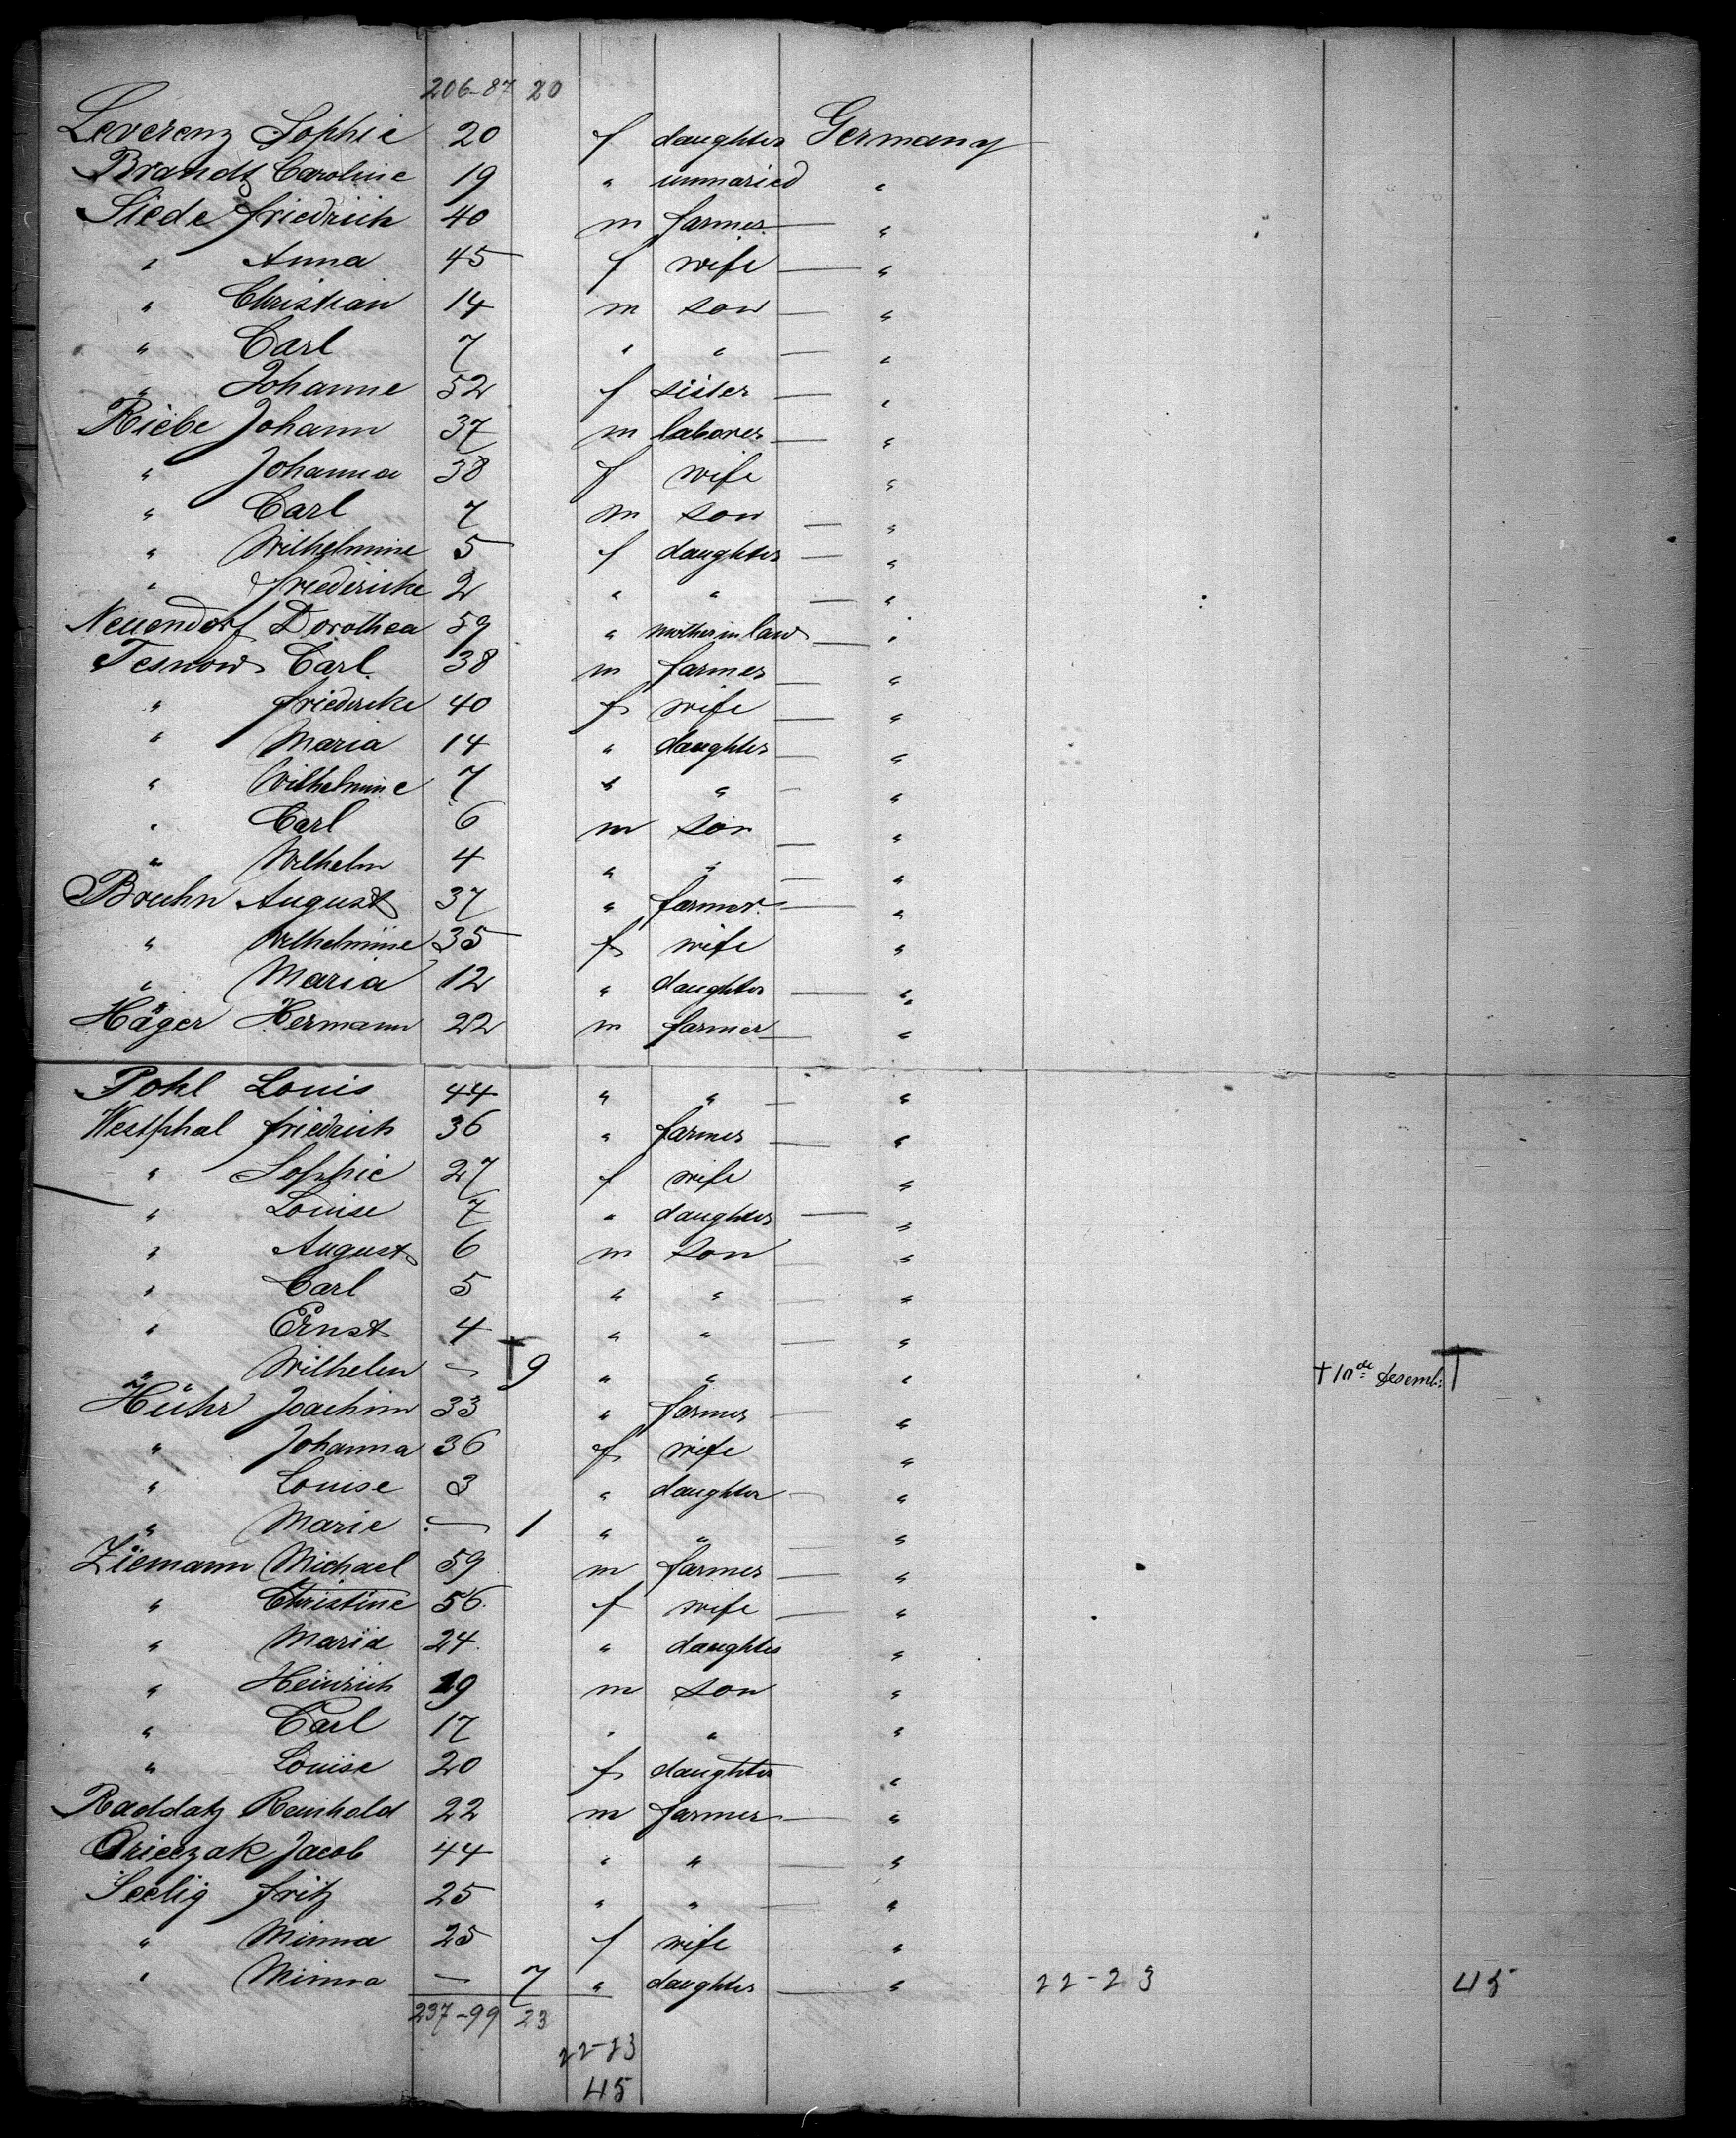 206-87 20
Leverenz Sophie 20 f daughter Germany
Brandt Caroline 19 " unmaried "
Siede Friedrich 40 m farmer "
" Anna 45 f wife "
" Christian 14 m son "
" Carl 7 " " "
" Johanne 52 f sister "
Riebe Johann 37 m laborer "
" Johanna 38 f wife "
" Carl 7 m son "
" Wilhelmine 5 f daughter "
" Friedericke 2 " " "
Neuendorf Dorothea 59 " mother in law "
Tesnow Carl 38 m farmer "
" Friedericke 40 f wife "
" Maria 14 " daughter "
" Wilhelmine 7 " " "
" Carl 6 m son "
" Wilhelm 4 " " "
Bruhn August 37 " farmer "
" Wilhelmine 35 f wife "
" Maria 12 " daughter "
Häger Hermann 22 m farmer "
Pohl Louis 44 " " "
Westphal Friedrich 36 " farmer "
" Sophie 27 f wife "
" Louise 7 " daughter "
" August 6 m son "
" Carl 5 " " "
" Ernst 4 " " "
" Wilhelm — † 9 " " " † 10de Desemb. †
Hühr Joachim 33 " farmer "
" Johanna 36 f wife "
" Louise 3 " daughter "
" Marie — 1 " " "
Ziemann Michael 59 m farmer "
" Christine 56 f wife "
" Maria 24 " daughter "
" Heinrich 19 m son "
" Carl 17 " " "
" Louise 20 f daughter "
Raddatz Reinhold 22 m farmer "
Jacob 44 " " "
Seelig Fritz 25 " " "
" Minna 25 f wife "
" Minna — 7 " daughter " 22-23 45
237-99 23
22-23
45